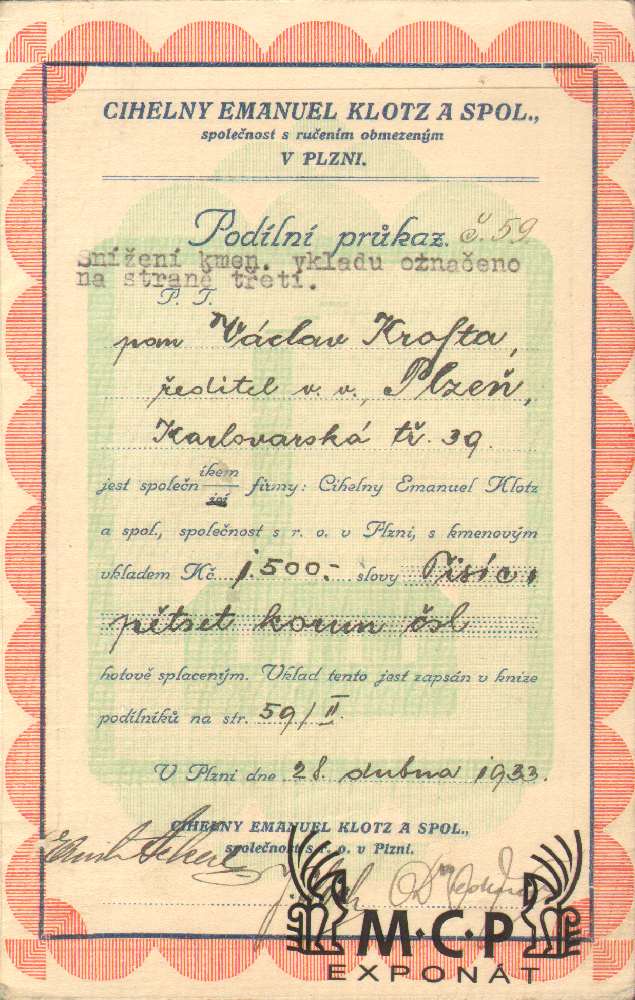 CIHELNY EMANUEL KLOTZ A SPOL.,
společnost s ručením obmezeným
V PLZNI.
Podílní průkaz. č. 59
Snížení kmen. vkladu označeno
na straně třetí.
P. T.
pan Václav Krofta,
ředitel v. v., Plzeň,
Karlovarská tř. 39.
jest společn íkem firmy: Cihelny Emanuel Klotz
a spol., společnost s r. o. v Plzni, s kmenovým
vkladem Kč 1.500.- slovy Tisíc
pětset korun čsl
hotově splaceným. Vklad tento jest zapsán v knize
podílníků na str. 59/II.
V Plzni dne 28. dubna 1933.
CIHELNY EMANUEL KLOTZ A SPOL.,
společnost s r. o. v Plzni.
M·C·P
EXPONÁT